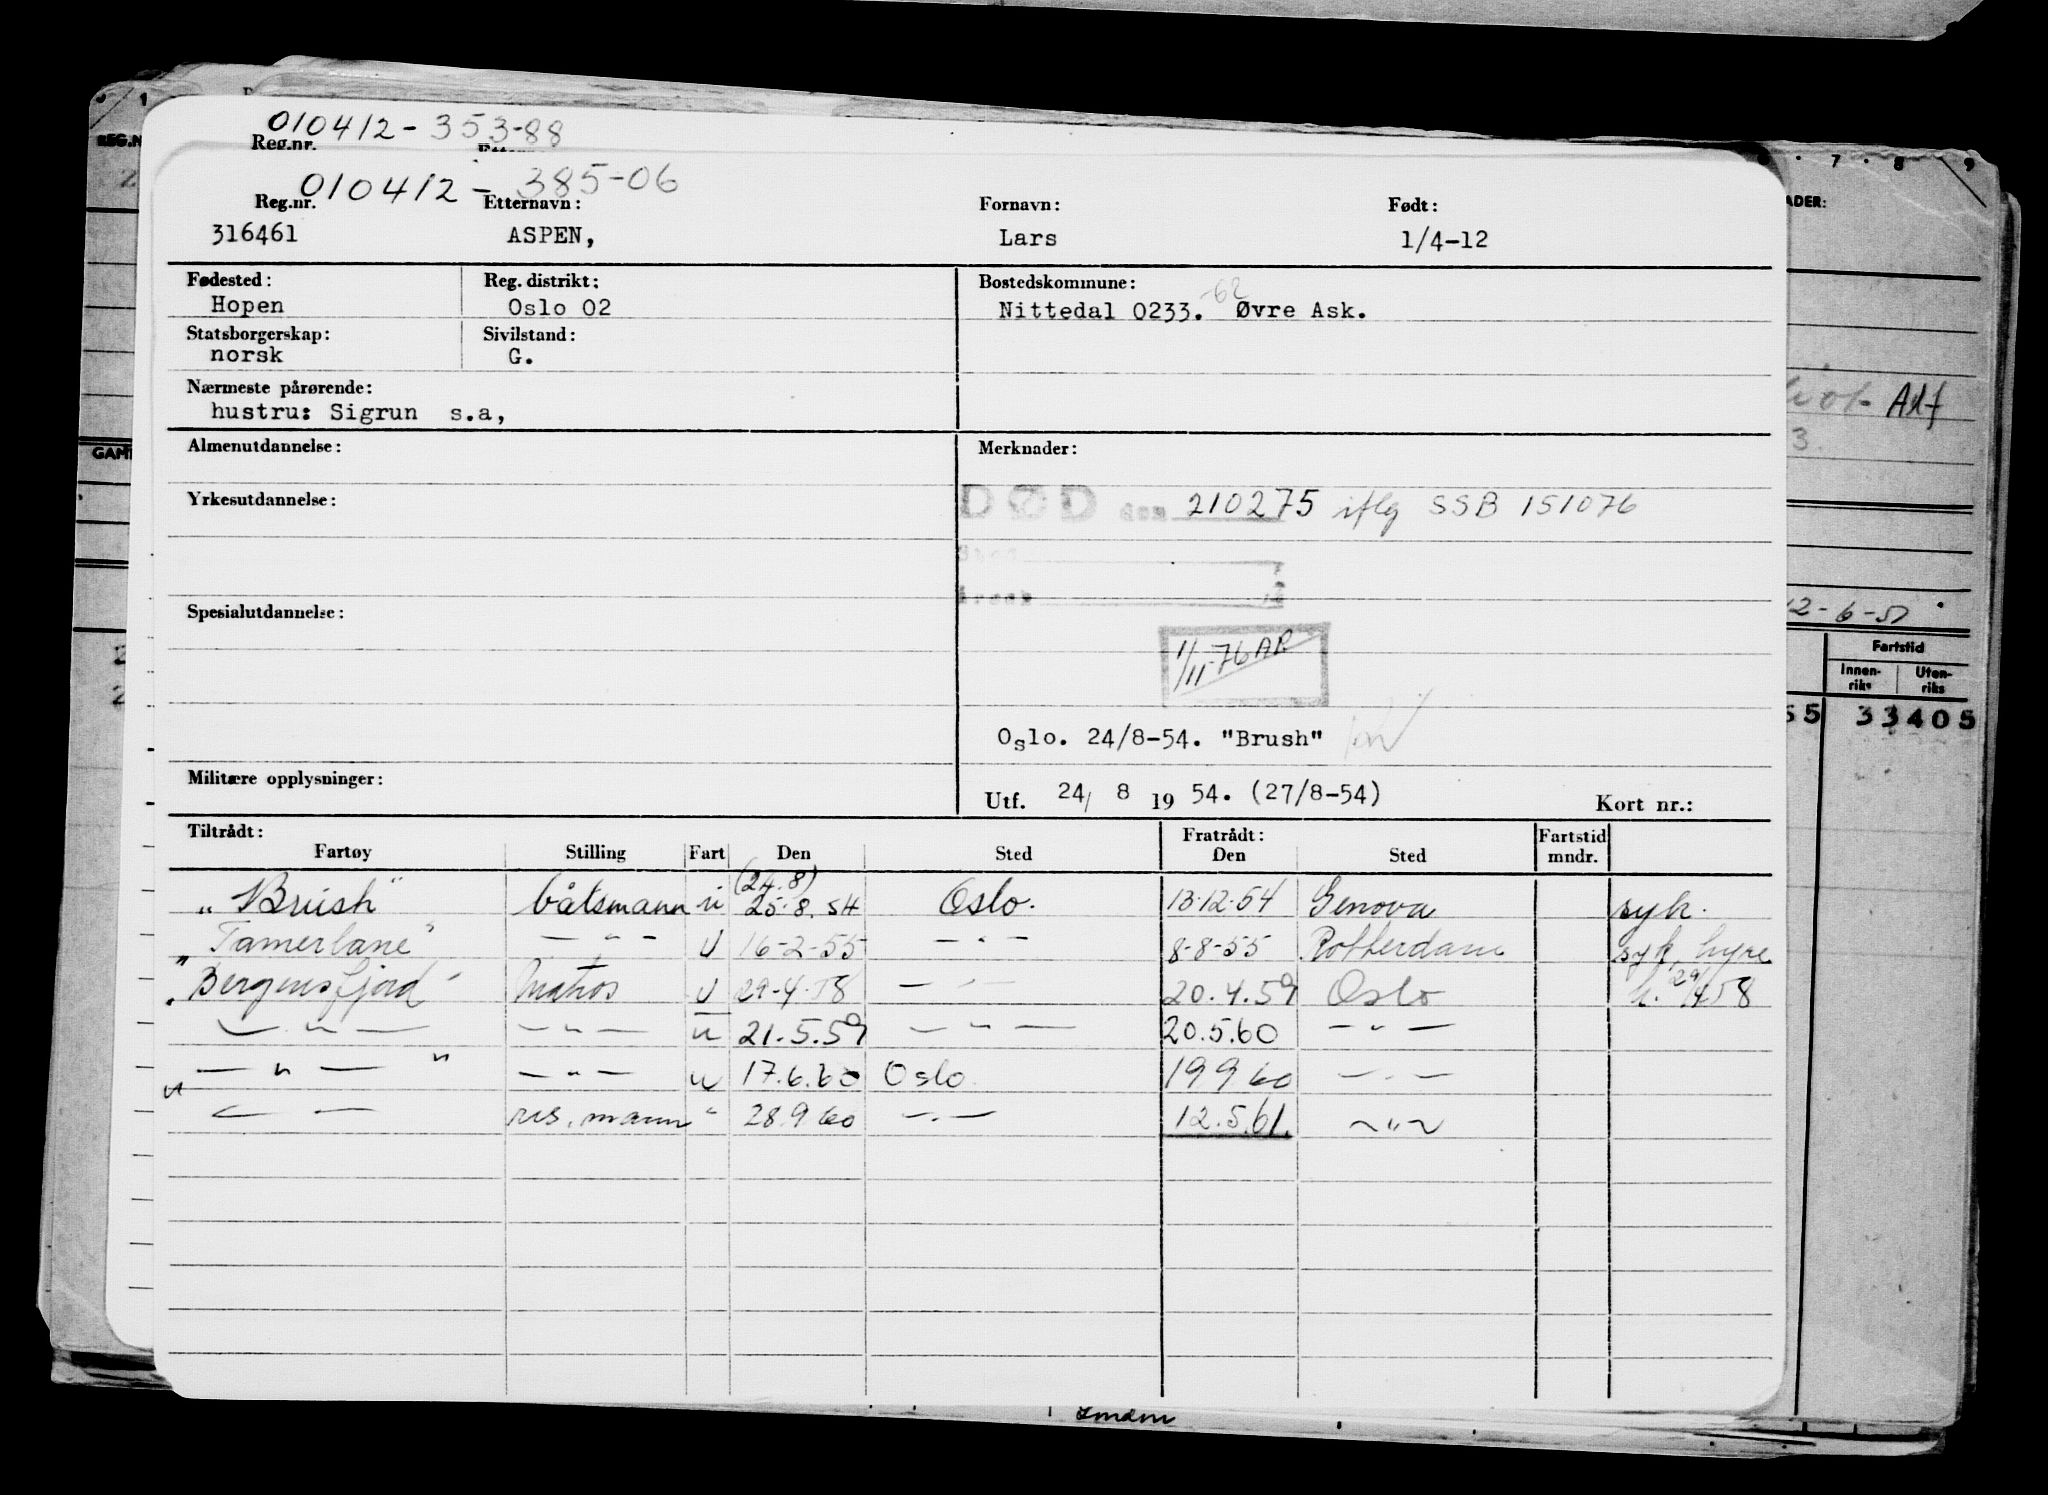 010412-353-88
Reg.nr.
010412-385-06
Reg.nr. Etternavn: Fornavn: Født:
316461 ASPEN, Lars 1/4-12
Fødested: Reg. distrikt: Bostedskommune:
Hopen Oslo 02 Nittedal 0233. -62 Øvre Ask.
Statsborgerskap: Sivilstand:
norsk G.
Nærmeste pårørende:
hustru: Sigrun s.a,
Almenutdannelse: Merknader:
Yrkesutdannelse: DØD den 210275 iflg SSB 151076
Spesialutdannelse:
1/11-76 AR
Oslo. 24/8-54. "Brush"
Militære opplysninger: Utf. 24/ 8 19 54. (27/8-54) Kort nr.:
Tiltrådt: Fratrådt: Fartstid
Fartøy Stilling Fart Den Sted Den Sted mndr.
(24.8)
"Brush" båtsmann u 25.8.54 Oslo. 13-12-54 Genova syk.
"Tamerlane" — " — U 16-2-55 — " — 8-8-55 Rotterdam syk, hyre
"Bergensfjord" Matros U 29-4-58 — " — 20.4.59 Oslo h. 29/4 58
— " — — " — u 21.5.59 — " — 20.5.60 — " —
— " — " — " — u 17.6.60 Oslo 19 9 60 — " —
" — — res. mann " 28 9 60 — " — 12.5.61. — " —
REG.N
ADER:
7 8 9
Alf
3.
GAM
12-6-51
Fartstid
Innen-riks Uten-riks
55 33405